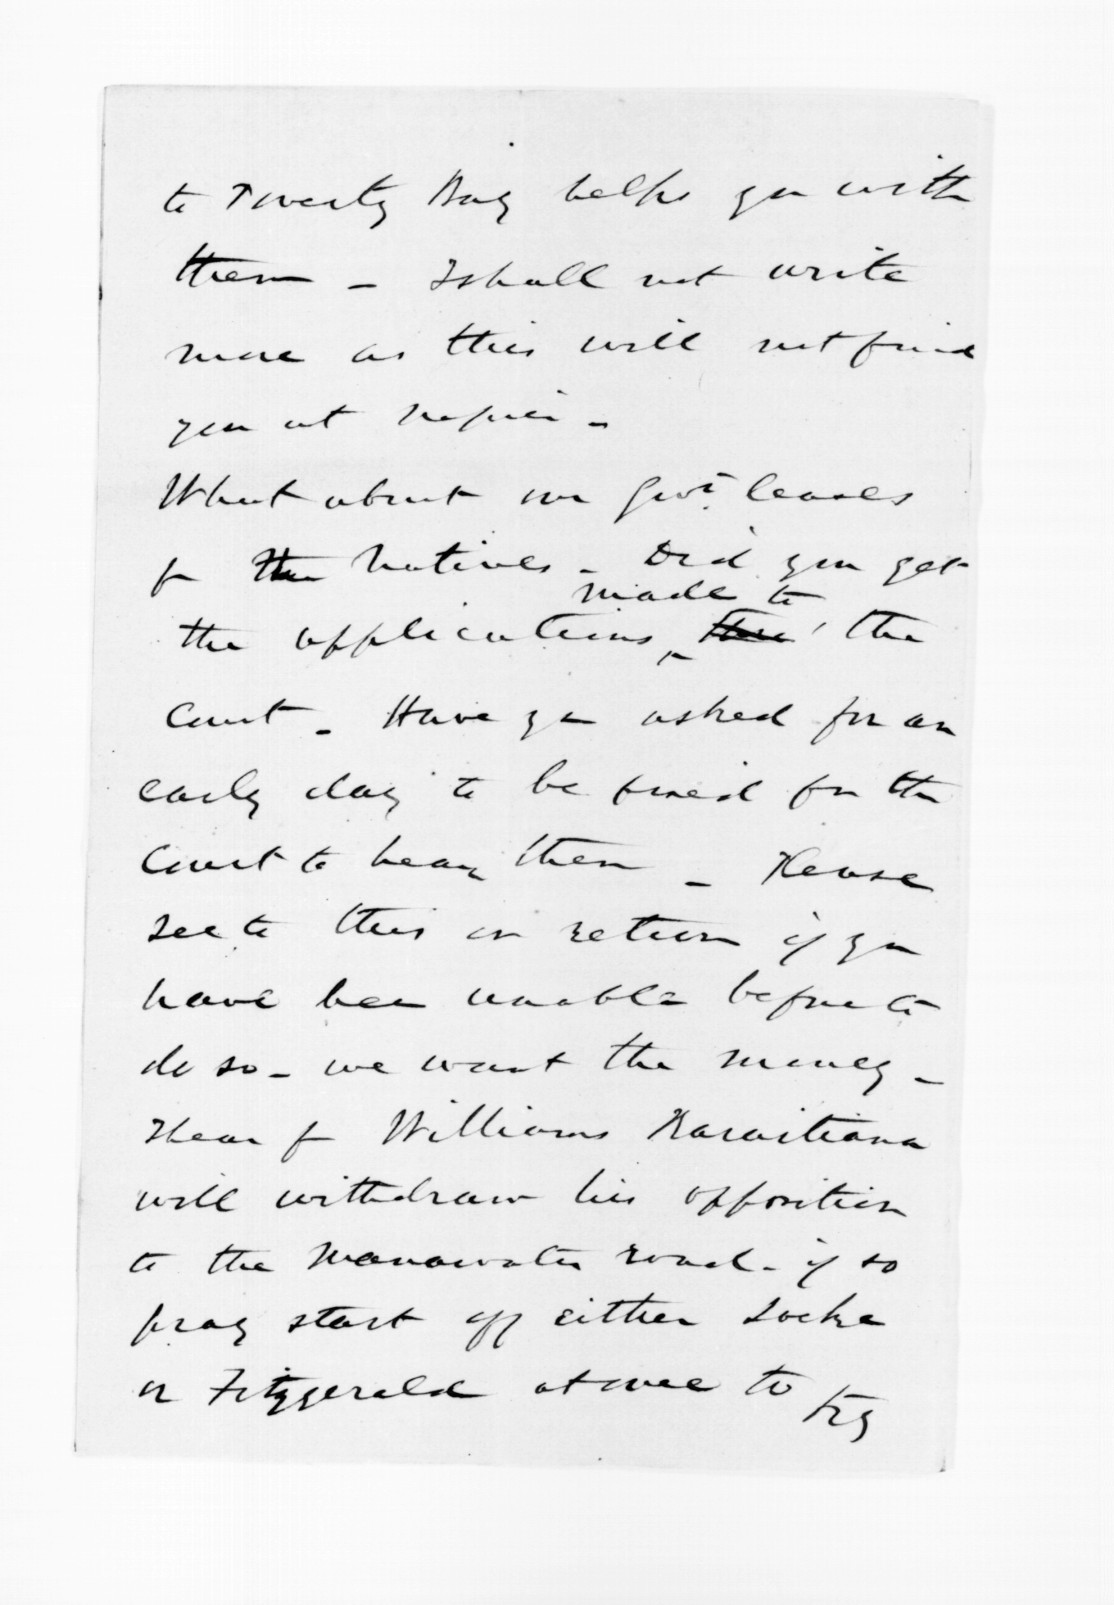 to Poverty Bay helps you with
them - I shall not write
more as this will not find
you at Napier -
What about our Govt. leases
fr the Natives - Did you get
the applications made to the
Court - Have you asked for an
early day to be fixed for the
Court to hear them - Please
see to this on return if you
have been unable before to
do so - we want the money -
I hear fr Williams Karaitiana
will withdraw his opposition
to the Manawatu road - if so
pray start off either Locke
or Fitzgerald at once to
try